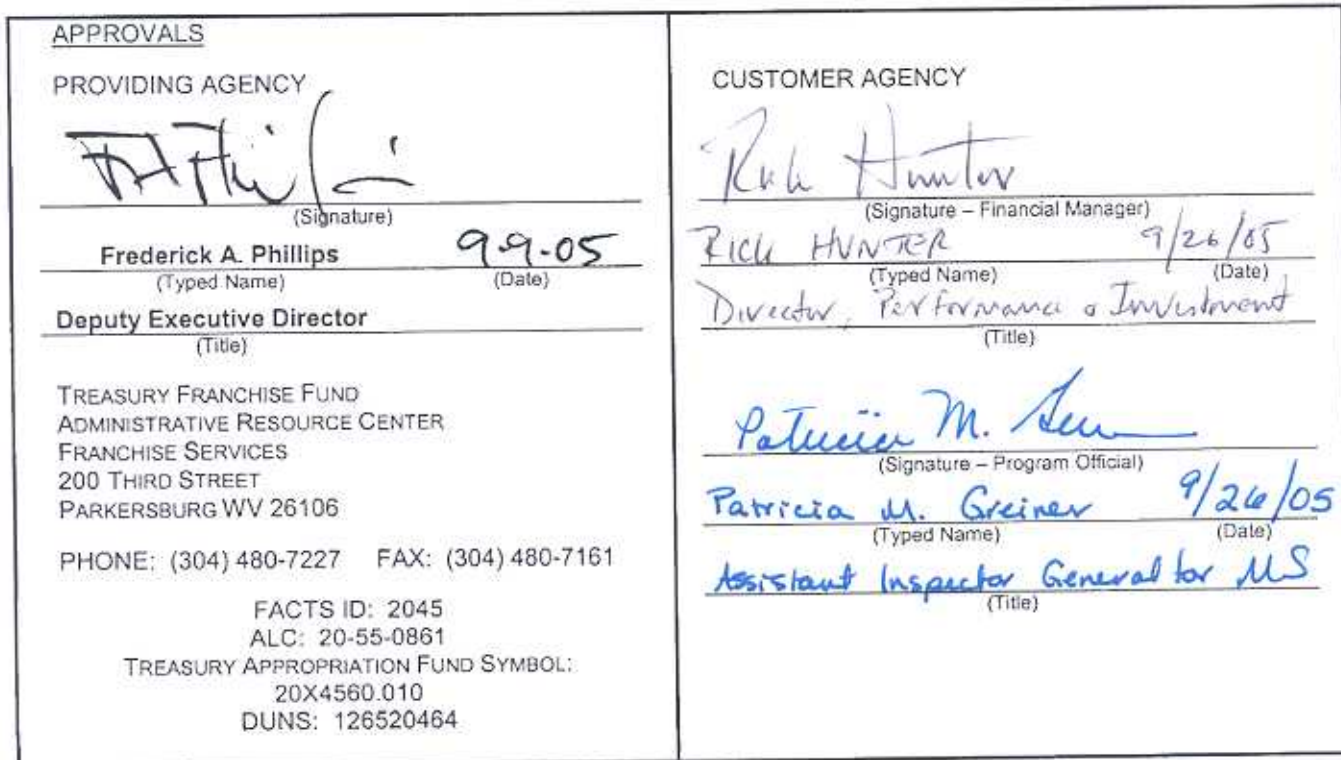 APPROVALS
PROVIDING AGENCY
(Signature)
Frederick A. Phillips 9-9-05
(Typed Name) (Date)
Deputy Executive Director
(Title)
TREASURY FRANCHISE FUND
ADMINISTRATIVE RESOURCE CENTER
FRANCHISE SERVICES
200 THIRD STREET
PARKERSBURG WV 26106
PHONE: (304) 480-7227 FAX: (304) 480-7161
FACTS ID: 2045
ALC: 20-55-0861
TREASURY APPROPRIATION FUND SYMBOL:
20X4560.010
DUNS: 126520464
CUSTOMER AGENCY
Rick Hunter
(Signature – Financial Manager)
RICK HUNTER 9/26/05
(Typed Name) (Date)
Director, Performance & Investment
(Title)
Patricia M.
(Signature – Program Official)
Patricia M. Greiner 9/26/05
(Typed Name) (Date)
Assistant Inspector General for MS
(Title)